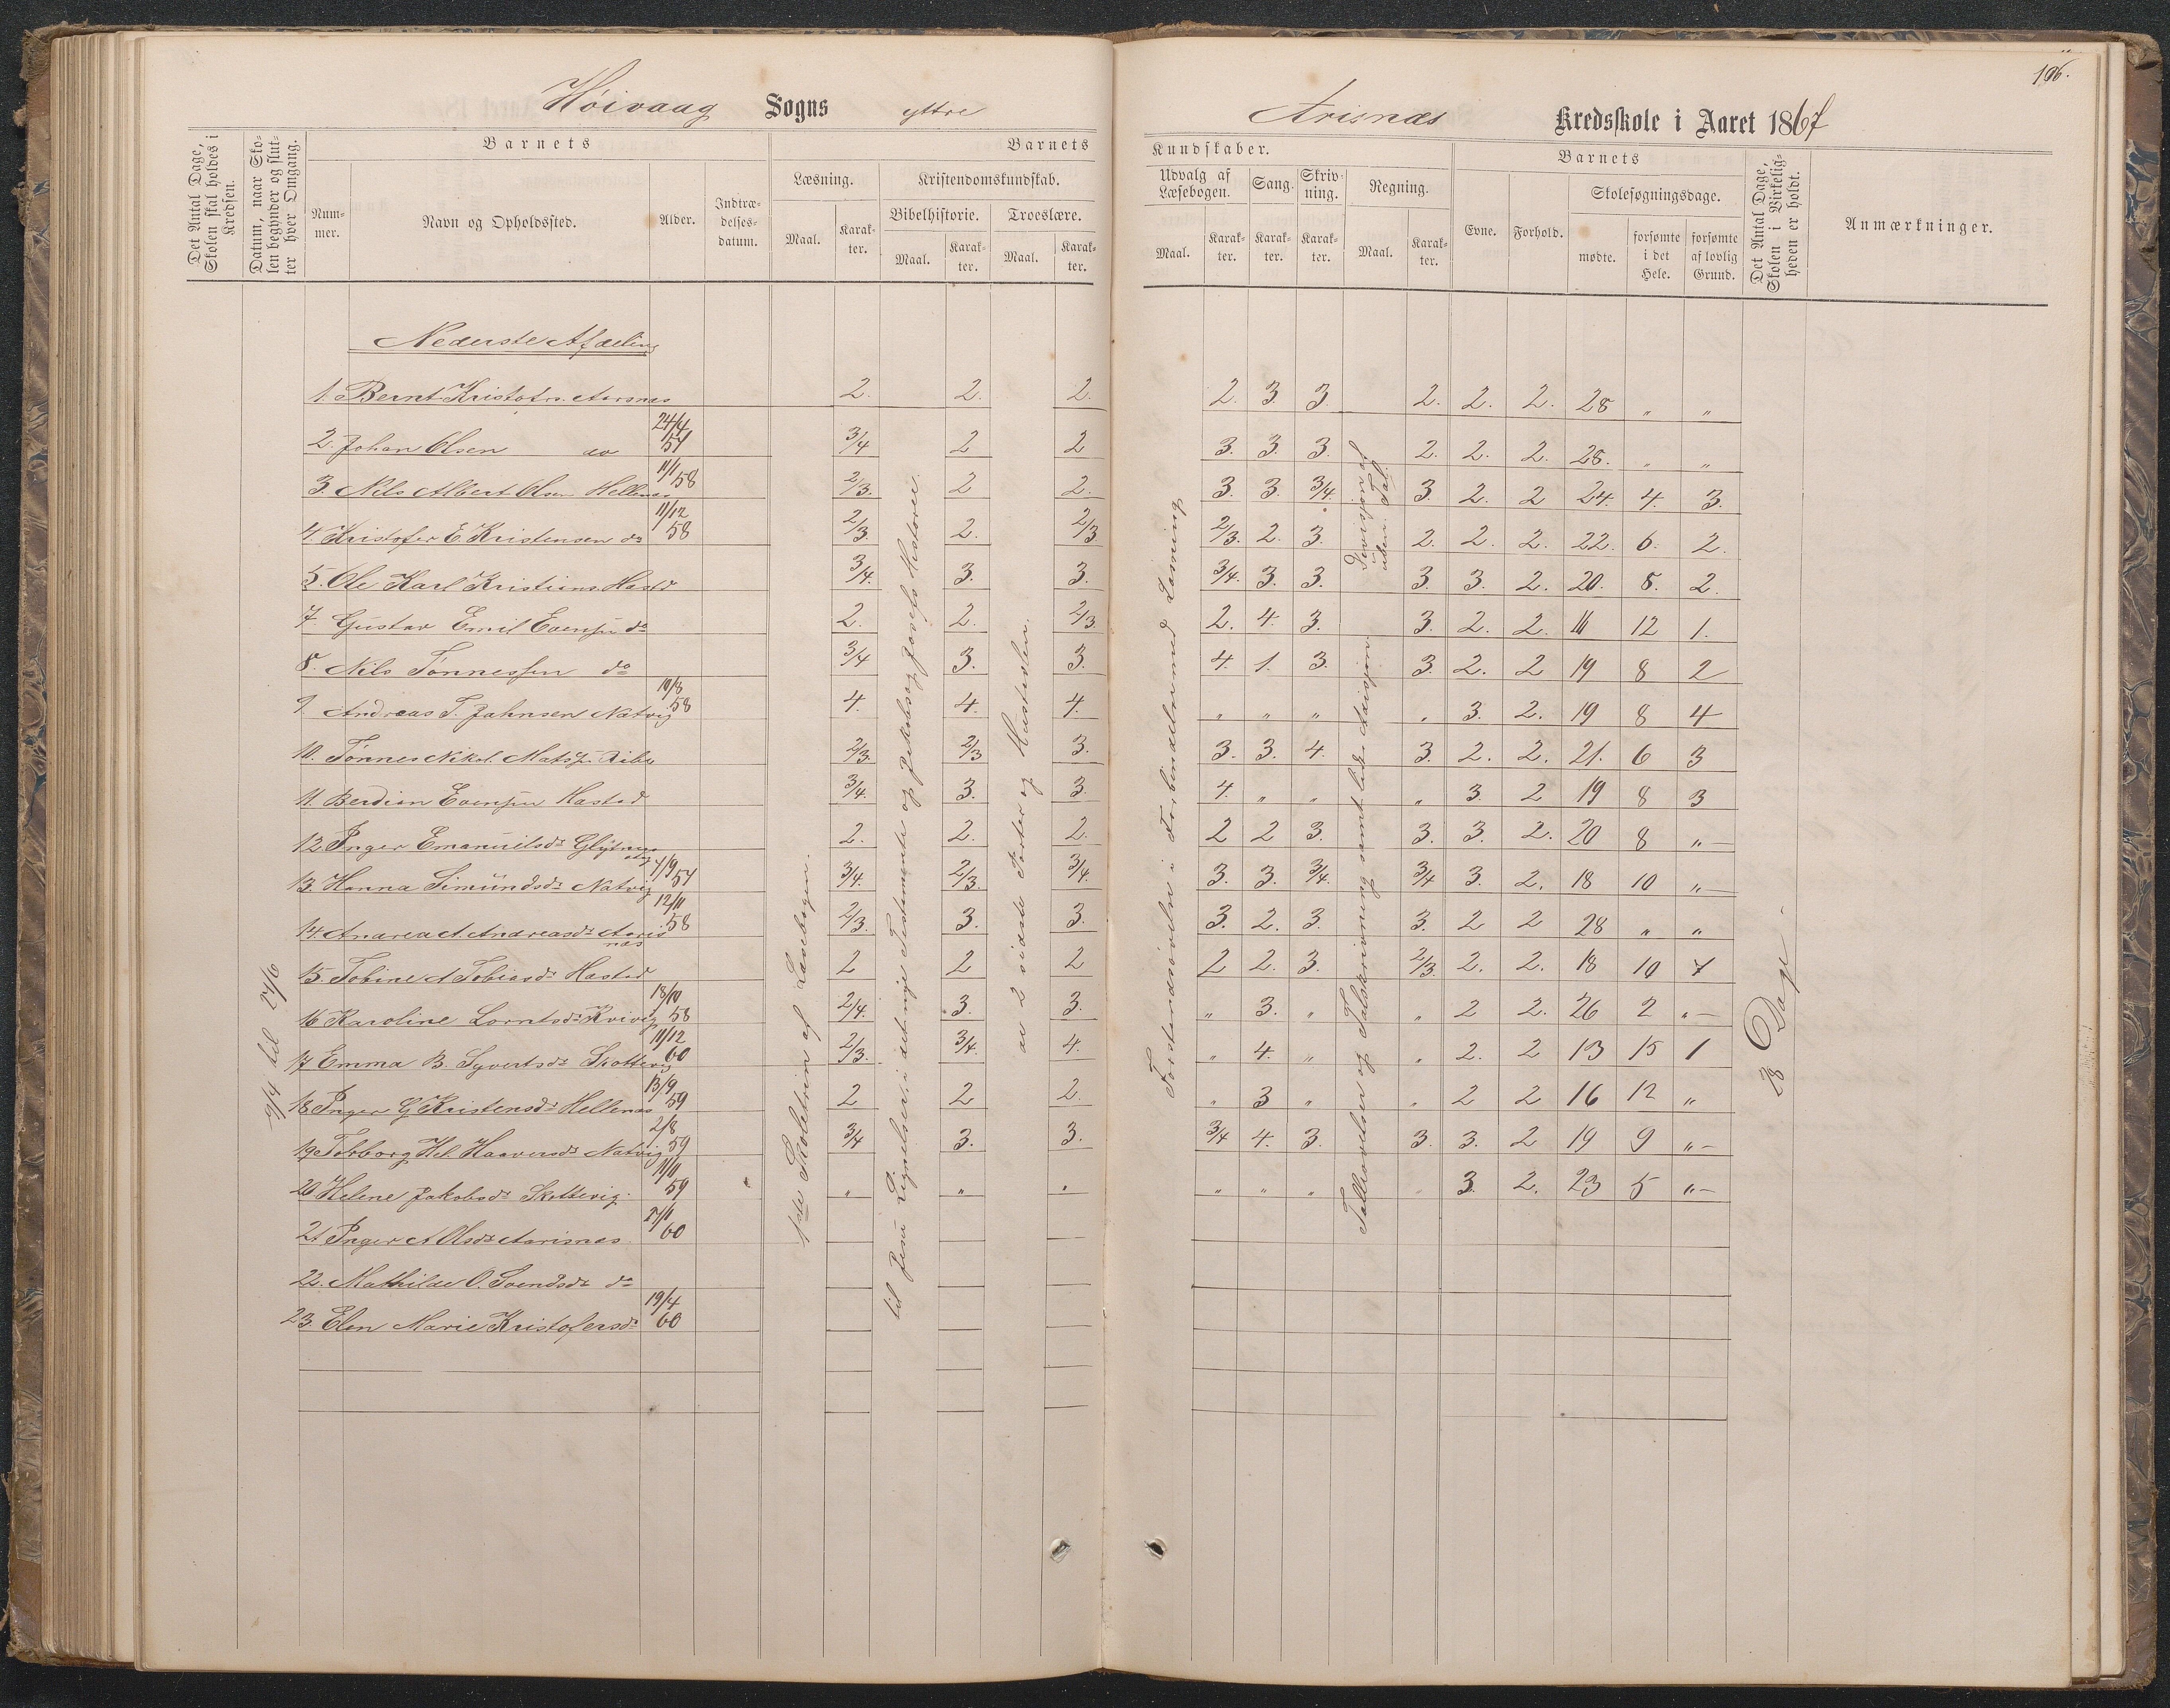 106.
Höivaag Sogns yttre Arisnæs Kredsskole i Aaret 1867
Det Antal Dage, Skolen skal holdes i Kredsen.
Datum, naar Skolen begynder og slutter hver Omgang.
Barnets
Nummer.
Navn og Opholdssted.
Alder.
Indtrædelsesdatum.
Barnets
Læsning.
Maal.
Karakter.
Kristendomskundskab.
Bibelhistorie.
Maal.
Karakter.
Troeslære.
Maal.
Karakter.
Kundskaber.
Udvalg af Læsebogen.
Maal.
Karakter.
Sang.
Karakter.
Skrivning.
Karakter.
Regning.
Maal.
Karakter.
Barnets
Evne.
Forhold.
Skolesøgningsdage.
mødte.
forsømte i det Hele.
forsømte af lovlig Grund.
Det Antal Dage, Skolen i Virkeligheden er holdt.
Anmærkninger.
Nederste Afdeling
1. Bernt Kristofs. Aarsnæs 2. 2. 2. 2. 3. 3. 2. 2. 2. 28 " "
2. Johan Olsen do 24/4 57 3/4 2 2 3. 3. 3. 2. 2. 2. 28. " "
3. Nils Albert Olsen Hellenæs 11/1 58 2/3. 2 2. 3. 3. 3/4. 3. 2. 2 24. 4. 3.
4. Kristofer E. Kristensen do 11/12 58 2/3. 2. 2/3 2/3. 2. 3. 2. 2. 2. 22. 6. 2.
5. Ole Karl Kristians. Hastd 3/4. 3. 3. 3/4. 3. 3. 3. 3. 2. 20. 8. 2.
7 Gustav Emil Evensen do 2. 2. 2/3 2. 4. 3. 3. 2. 2. 16 12 1.
8. Nils Tønnessen do 3/4 3. 3. 4. 1. 3. 3. 2. 2 19 8 2
9 Andreas T. Jahnsen Natvig 10/8 58 4. 4. 4. " " " " 3. 2. 19 8 4
10. Tønnes Nikol. Mats. 2/3. 2/3 3. 3. 3. 4. 3. 2. 2. 21. 6 3
11. Berdien Evensen Hastad 3/4. 3. 3 4. " " " 3. 2 19 8 3
12 Inger Emanuelsdr 2. 2. 2. 2 2 3. 3. 3. 2. 20 8 "
13. Hanna Simundsdr Natvig 4/9 57 3/4. 2/3. 3/4. 3. 3. 3/4. 3/4 3. 2. 18 10 "
14. Andrea A. Andreasdr Aarisnæs 12/11 58 2/3 3. 3. 3. 2. 3. 3. 2 2 28 " "
15. Tobine A Tobiasdr Hastad 2 2 2 2 2. 3. 2/3. 2. 2. 18 10 7
16 Karoline Lorntsdr Kvivig 18/10 58 2/4. 3. 3. " 3. " " 2 2. 26 2 "
17 Emma B. Syvertsdr Skottevig 11/12 60 2/3. 3/4. 4. " 4. " " 2. 2 13 15 1
18 Inger G Kristensdr Hellenæs 13/9 59 2 2 2. " 3 " " 2 2 16 12 "
19 Torborg Hel. Haavorsdr Natvig 2/8 59 3/4 3. 3. 3/4 4. 3. 3. 3. 2 19 9 "
20 Helene Jakobsdr Skottevig. 11/11 59 " " " " " " " 3. 2. 23 5 "
21 Inger A Olsdr Aarisnæs. 27/1 60
22. Mathilde O. Svendsdr do
23. Elen Marie Kristofersdr 19/4 60
9/4 til 27/6
1ste Skoletrin af Læsebogen.
til Jesu Lignelser i det nye Testamente og Jakobs og Josefs Historie.
de 2 sidste Parter og Hustavlen.
Forstandsøvelse i Forbindelse med Læsning
Talleøvelser og Talskrivning samt lidt
Division af uden Tal.
28 Dage